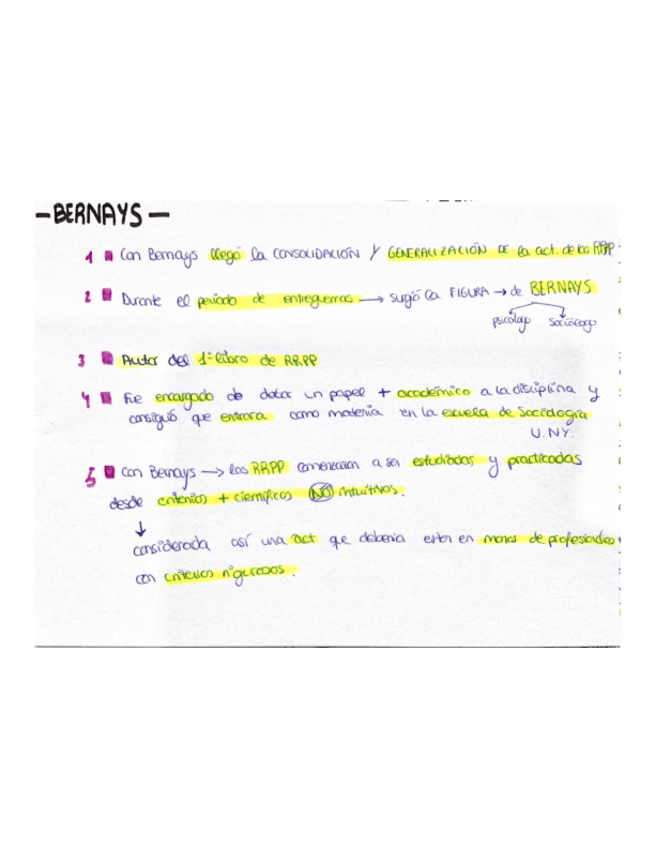 - BERNAYS -
1 Con Bernays llegó la CONSOLIDACIÓN Y GENERALIZACIÓN DE la act. de las RRPP.
2 Durante el período de entreguerras → surgió la FIGURA → de BERNAYS
psicólogo sociólogo
3 Autor del 1er libro de RR.PP
4 Fue encargado de dotar un papel + académico a la disciplina y
consiguió que entrara como materia en la escuela de Sociología
U. NY.
5 Con Bernays → las RRPP comenzaron a ser estudiadas y practicadas
desde criterios + científicos NO intuitivos.
↓
considerada así una act que debería estar en manos de profesionales
con criterios rigurosos.